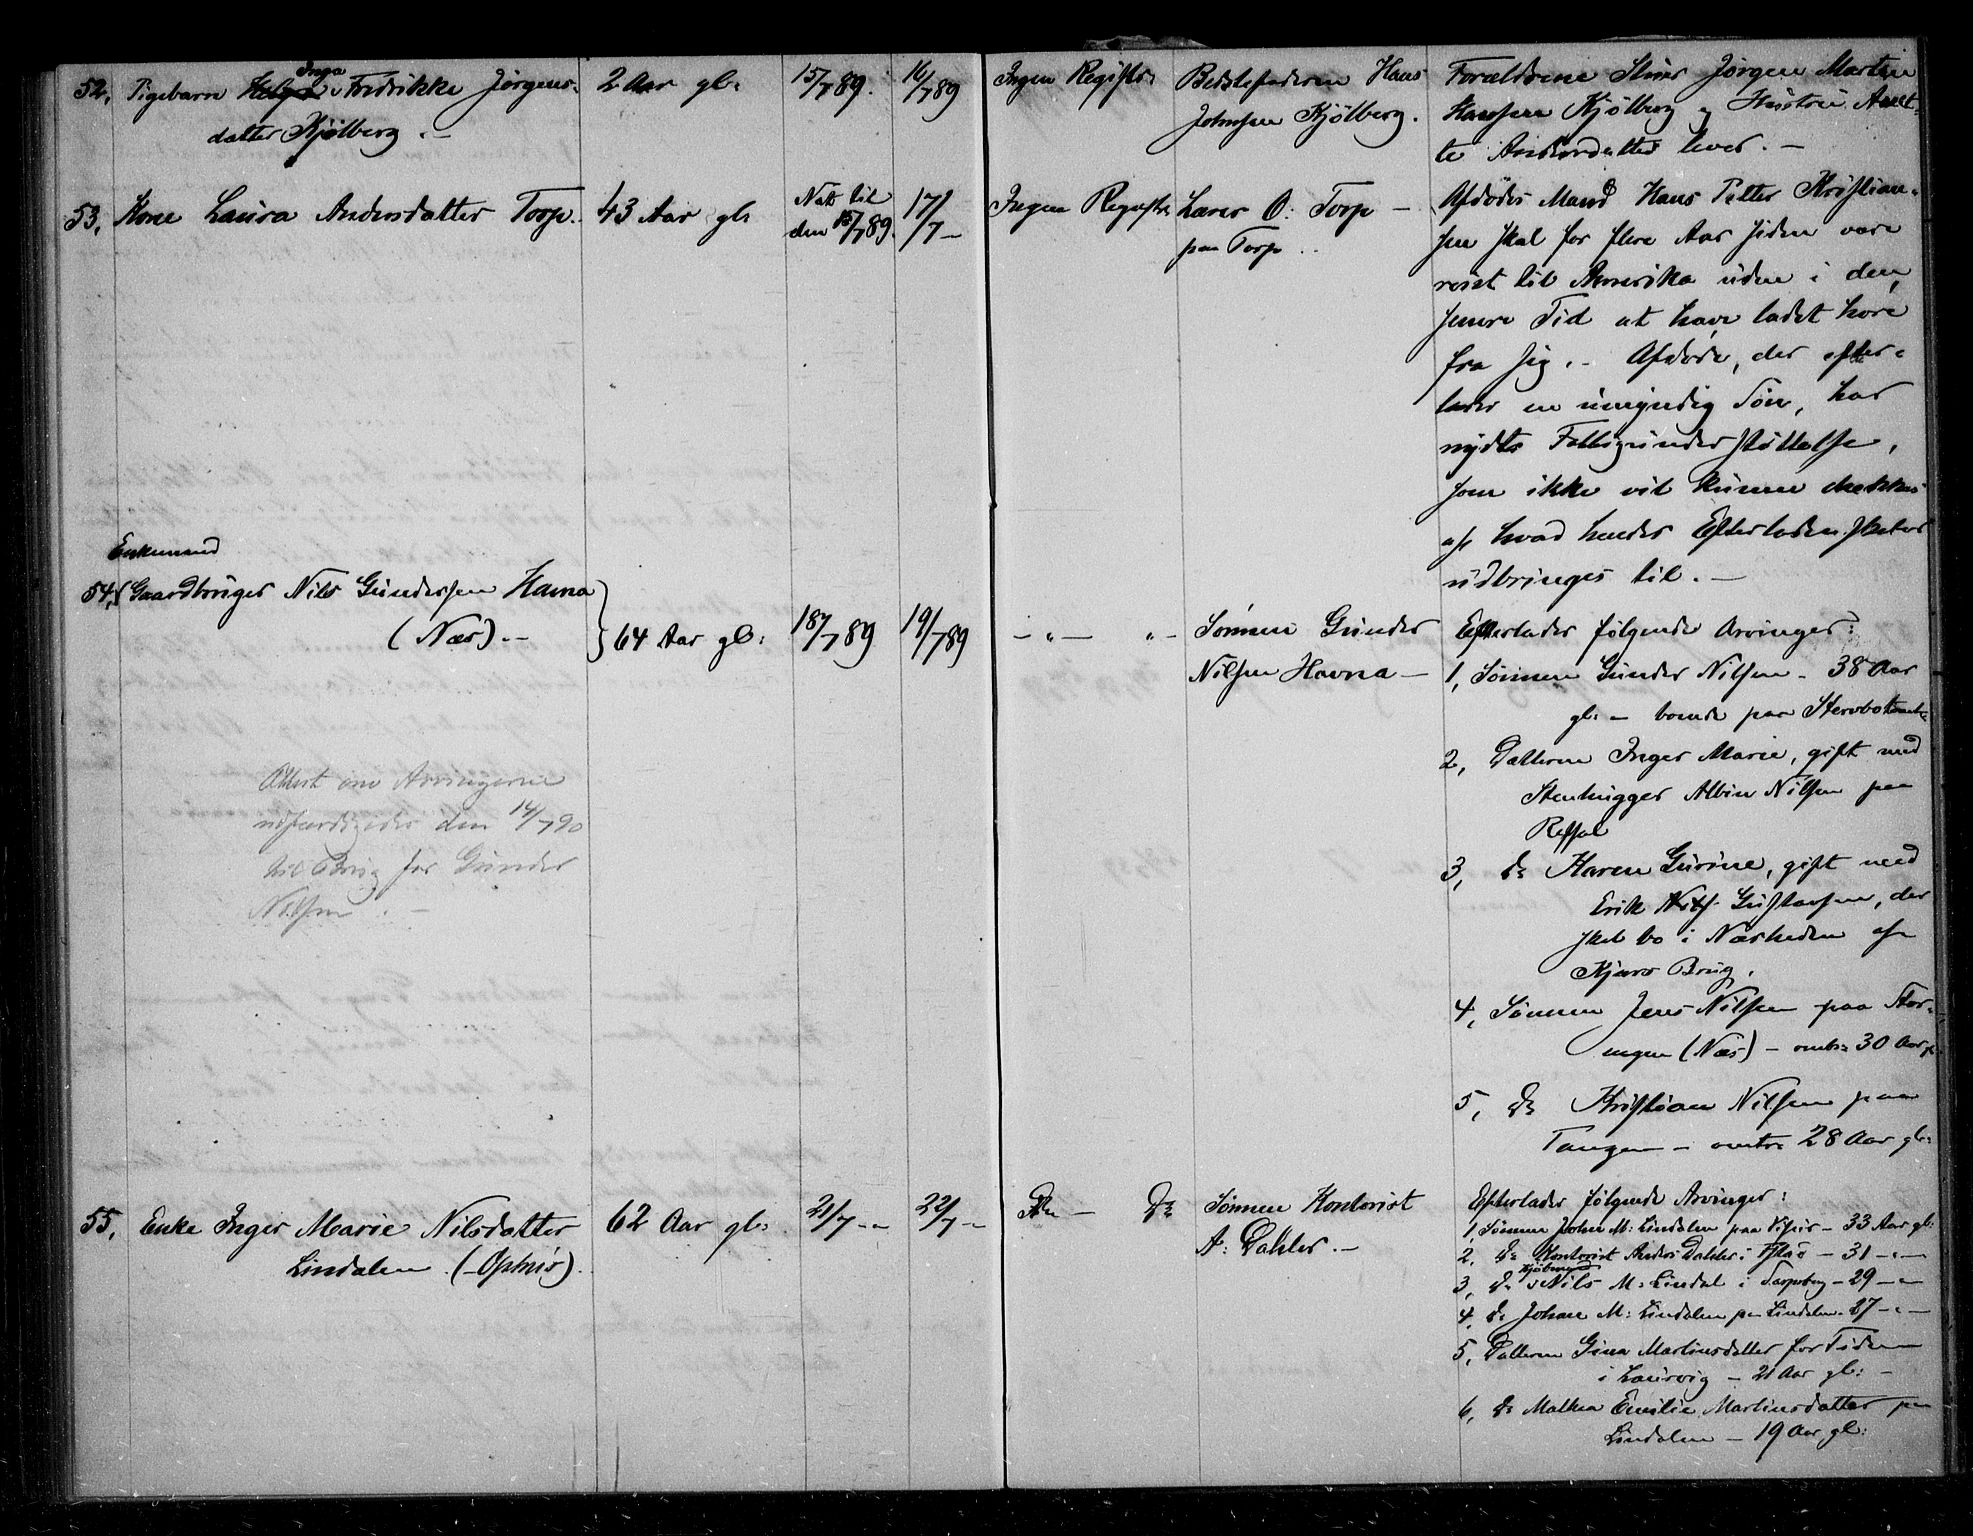 52, Pigebarn Helga Inga Fredrikke Jørgens-
datter Kjølberg. –
2 Aar gl:
15/7 89.
16/7 89
Ingen Registr:
Bedstefaderen Hans
Johnsen Kjølberg.
Forældrene Jørgen Martin
Hansen Kjølberg og Hustru Anet-
te lever. –
53, Kone Laura Andersdatter Torp.
43 Aar gl:
Natt til
den 15/7 89.
17/7 –
Ingen Registr:
Lærer O: Torp –
paa Torp ..
Afdødes Mand Hans Petter Kristian-
sen skal for flere Aar siden være
reist til Amerika uden i den
senere Tid at have ladet høre
fra sig. – Afdøde, der efter-
lader en umyndig Søn, har
nydt Fattigunderstøttelse,
som ikke vil kunne dækkes
af hvad hendes Efterladenskaber
udbringes til. –
Enkemand
54, Gaardbruger Nils Gundersen Havna
(Næs). –
64 Aar gl:
18/7 89
19/7 89
– " – " –
Sønnen Gunder
Nilsen Havna –
Efterlader følgende Arvinger:
1, Sønnen Gunder Nilsen – 38 Aar
gl: – boende paa
2, Datteren Inger Marie, gift med
Stenhugger Albin Nilsen paa
3, Do Karen Gurine, gift med
Erik Gustavsen, der
skal bo i Nærheden af
Brug.
4, Sønnen Jens Nilsen paa Stor-
(Næs) – omtr: 30 Aar gl:
5, Do Kristian Nilsen paa
Tangen – omtr: 28 Aar gl:
Attest om Arvingerne
udfærdiget den 14/7 90
til Brug for Gunder
Nilsen. –
55, Enke Inger Marie Nilsdatter
Lindalen (Ophus).
62 Aar gl:
21/7 – "
22/7 – "
Do – Do
Sønnen Kontorist
A: Dahler. –
Efterlader følgende Arvinger:
1, Sønnen John M: Lindalen paa – 33 Aar gl:
2, Do Kontorist Anders Dahler i – 31 – " –
3, Do Kjøbmand Nils M: Lindal i Sarpsborg – 29 – "
4, Do Johan M: Lindalen paa Lindalen – 27 – " –
5, Datteren Gina Martinsdatter for Tiden
i Laurvig – 21 Aar gl: –
6, Do Mathea Emilie Martinsdatter paa
Lindalen – 19 Aar gl: